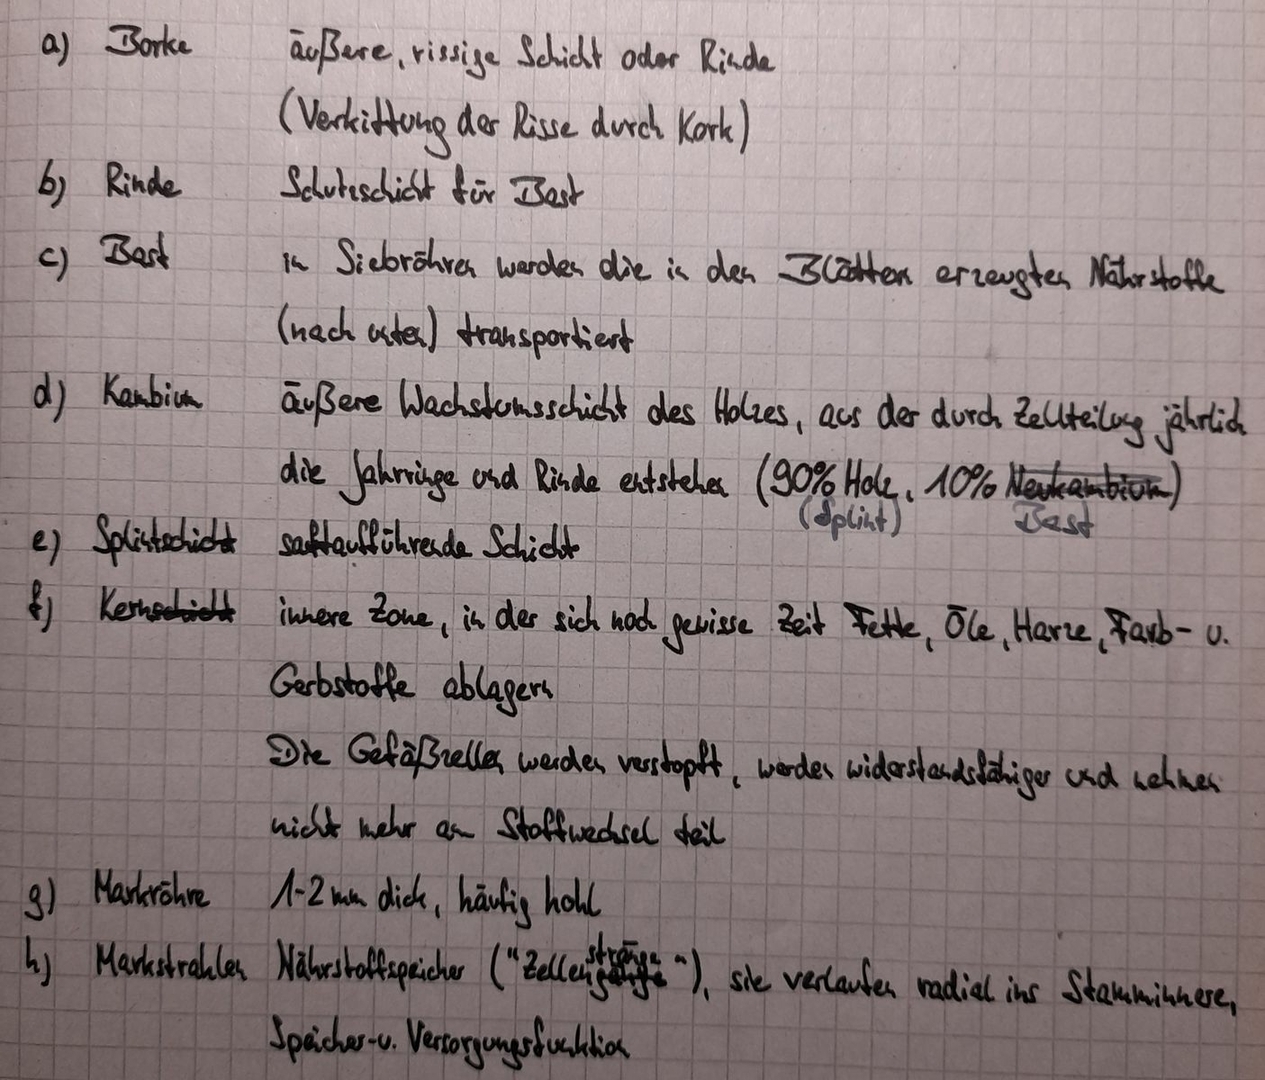 a) Borke äußere, rissige Schicht oder Rinde
(Verkittung der Risse durch Kork)
b) Rinde Schutzschicht für Bast
c) Bast in Siebröhren werden die in den Blättern erzeugten Nährstoffe
(nach unten) transportiert
d) Kambium äußere Wachstumsschicht des Holzes, aus der durch Zellteilung jährlich
die Jahrringe und Rinde entstehen (90% Holz, 10% Neukambium)
(Splint) Bast
e) Splintschicht saftaufführende Schicht
f) Kernschicht innere Zone, in der sich nach gewisse Zeit Fette, Öle, Harze, Farb- u.
Gerbstoffe ablagern
Die Gefäßzellen werden verstopft, werden widerstandsfähiger und nehmen
nicht mehr am Stoffwechsel teil
g) Markröhre 1-2 mm dick, häufig hohl
stränge
h) Markstrahlen Nährstoffspeicher ("Zellengänge"), sie verlaufen radial ins Stamminnere,
Speicher- u. Versorgungsfunktion